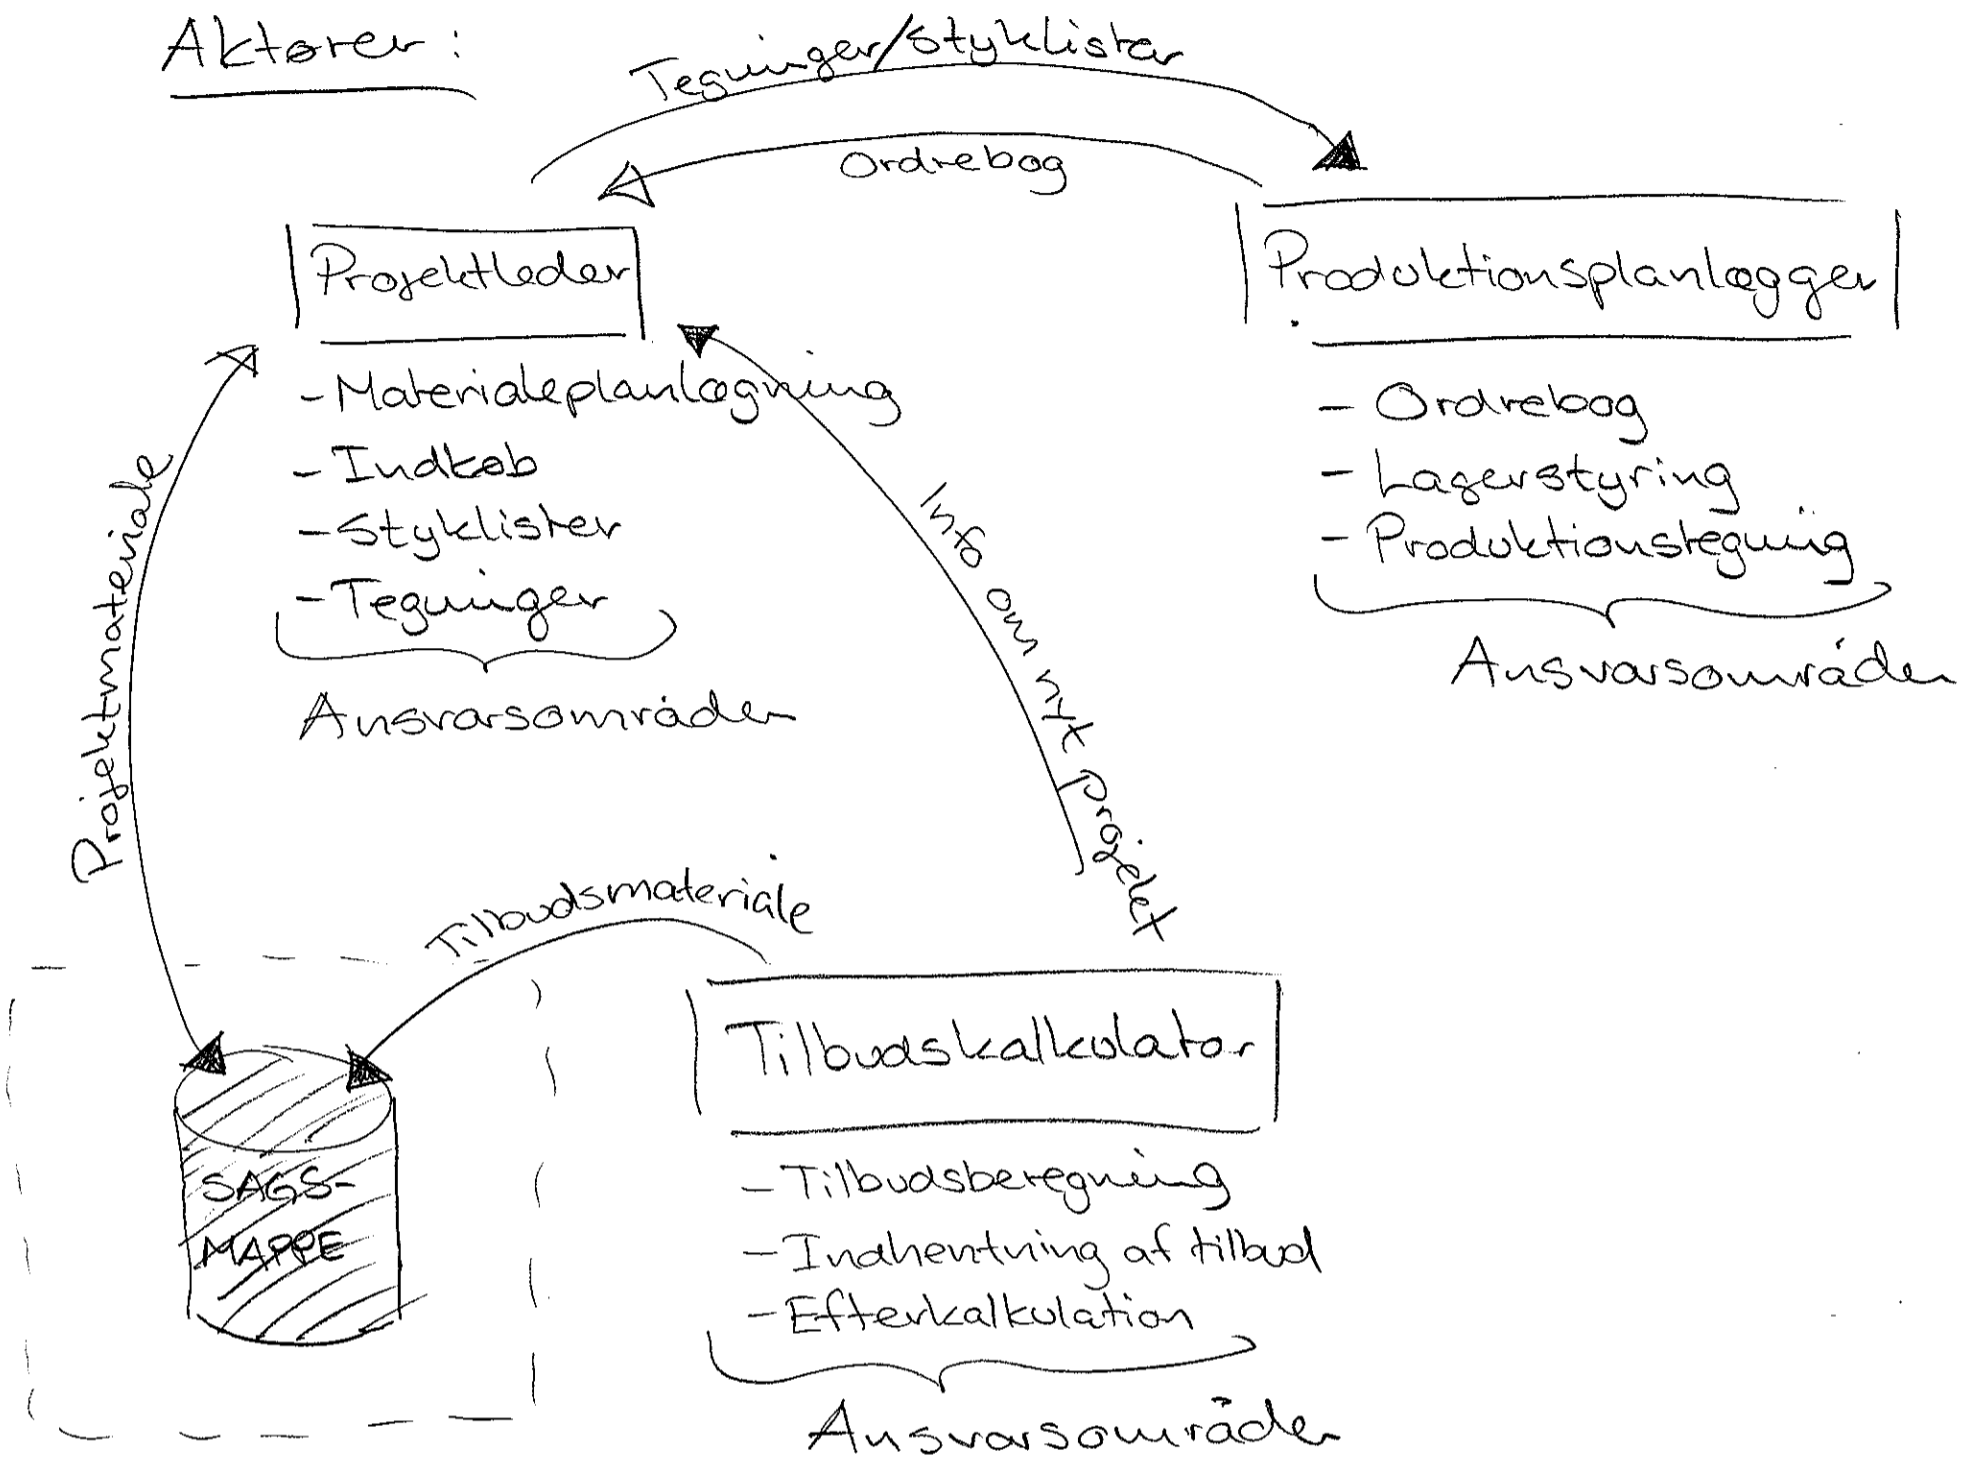 Aktører:
Tegninger/Styklister
Ordrebog
Projektleder
- Materialeplanlægning
- Indkøb
- Styklister
- Tegninger
Ansvarsområder
Produktionsplanlægger
- Ordrebog
- Lagerstyring
- Produktionstegning
Ansvarsområder
Projektmateriale
Info om nyt projekt
Tilbudsmateriale
SAGS-
MAPPE
Tilbudskalkulator
- Tilbudsberegning
- Indhentning af tilbud
- Efterkalkulation
Ansvarsområder